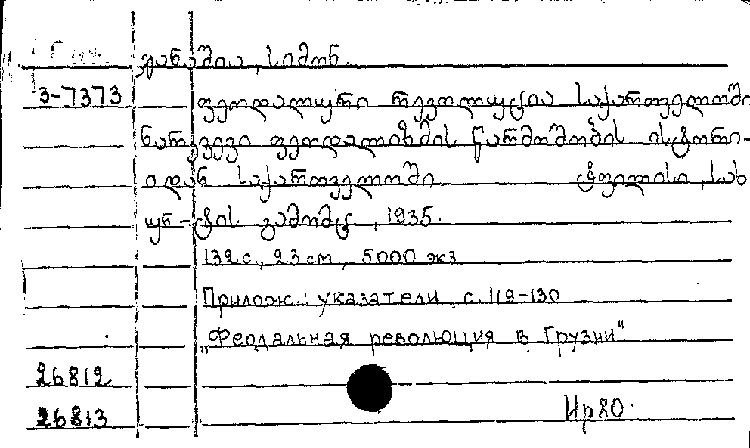 Груз.
ჯანაშია, სიმონ.
3-7373
ფეოდალური რევოლუცია საქართველოში
ნარკვევი ფეოდალიზმის წარმოშობის ისტორი-
იდან საქართველოში ტფილისი, სახ
უნ-ტის გამომც., 1935.
132 с., 23 см, 5000 экз
Прилож.: указатели, с. 119-130
"Феодальная революция в Грузии"
26812
26813
Ир80.